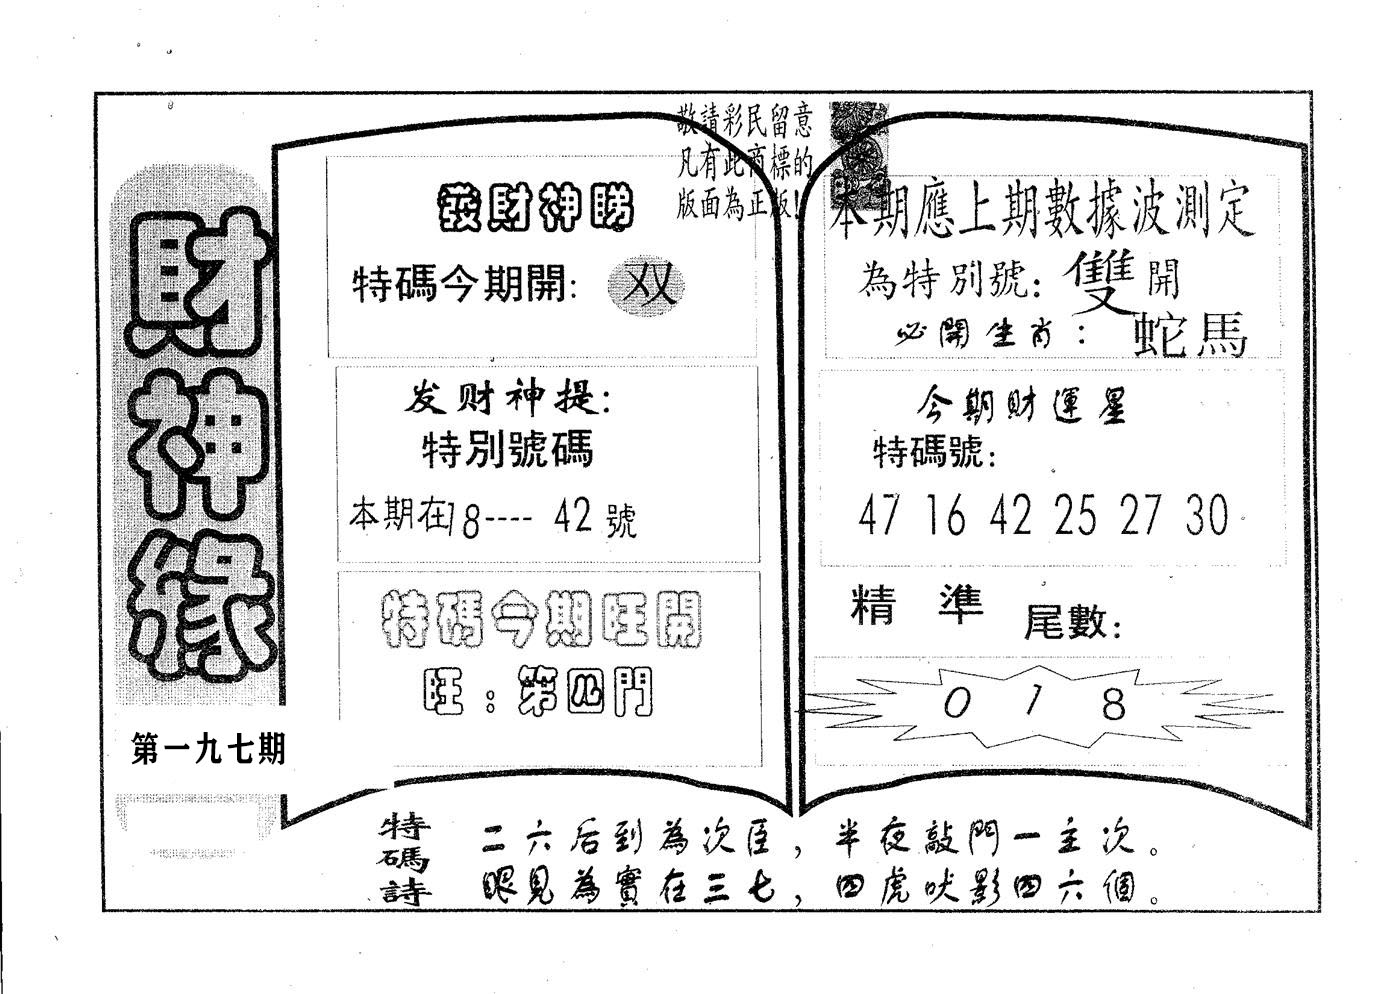 財神緣
第一九七期
敬請彩民留意
凡有此商標的
版面為正版!
發財神睇
特碼今期開: 双
发财神提:
特別號碼
本期在18---- 42 號
特碼今期旺開
旺:第四門
本期應上期數據波測定
為特別號: 雙 開
必開生肖: 蛇馬
今期財運星
特碼號:
47 16 42 25 27 30
精準 尾數:
0 1 8
特碼詩
二六后到為次臣,半夜敲門一主次。
眼見為實在三七,四虎吠影四六個。